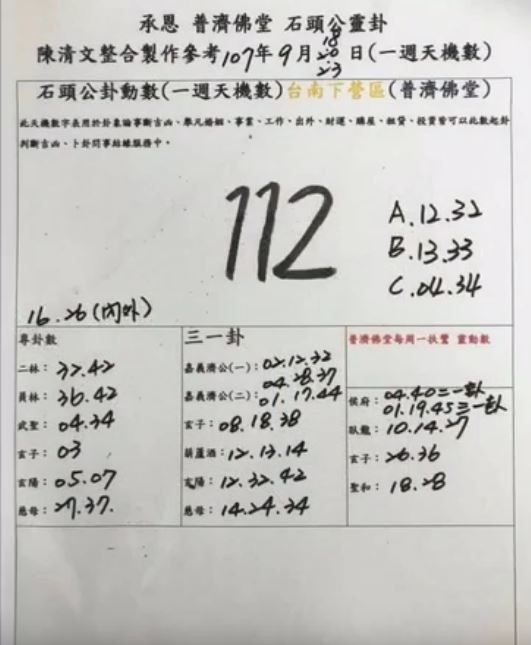 承恩 普濟佛堂 石頭公靈卦
陳清文整合製作參考107年9月18 20 23日(一週天機數)
石頭公卦動數(一週天機數)台南下營區(普濟佛堂)
此天機數字表用於卦象論事斷吉凶、舉凡婚姻、事業、工作、出外、財運、購屋、租貸、投資皆可以此數起卦
判斷吉凶、卜卦問事結緣服務中。
112
A.12.32
B.13.33
C.04.34
16.26(內外)
尊卦數
二林：32.42
員林：36.42
武聖：04.34
玄子：03
玄陽：05.07
慈母：27.37.
三一卦
嘉義濟公(一)：02.12.32
04.28.37
嘉義濟公(二)：01.17.44
玄子：08.18.38
葫蘆酒：12.13.14
玄陽：12.32.42
慈母：14.24.34
普濟佛堂每周一扶鸞 靈動數
侯府：04.40=一卦
01.19.45三一卦
臥龍：10.14.27
玄子：26.36
聖和：18.28